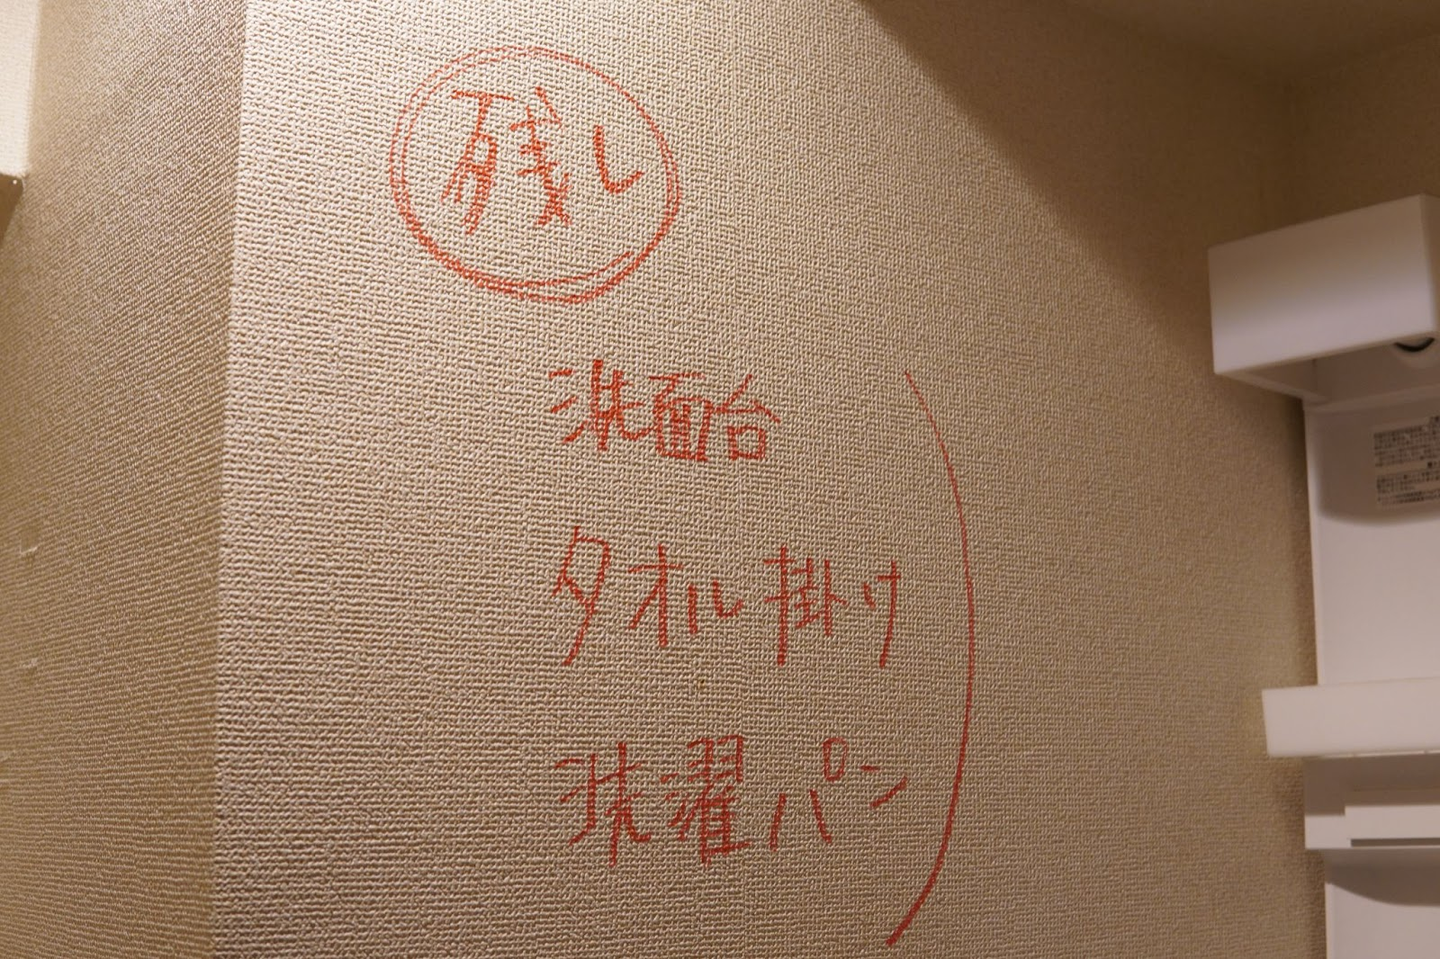 残し
洗面台
タオル掛け
洗濯パン